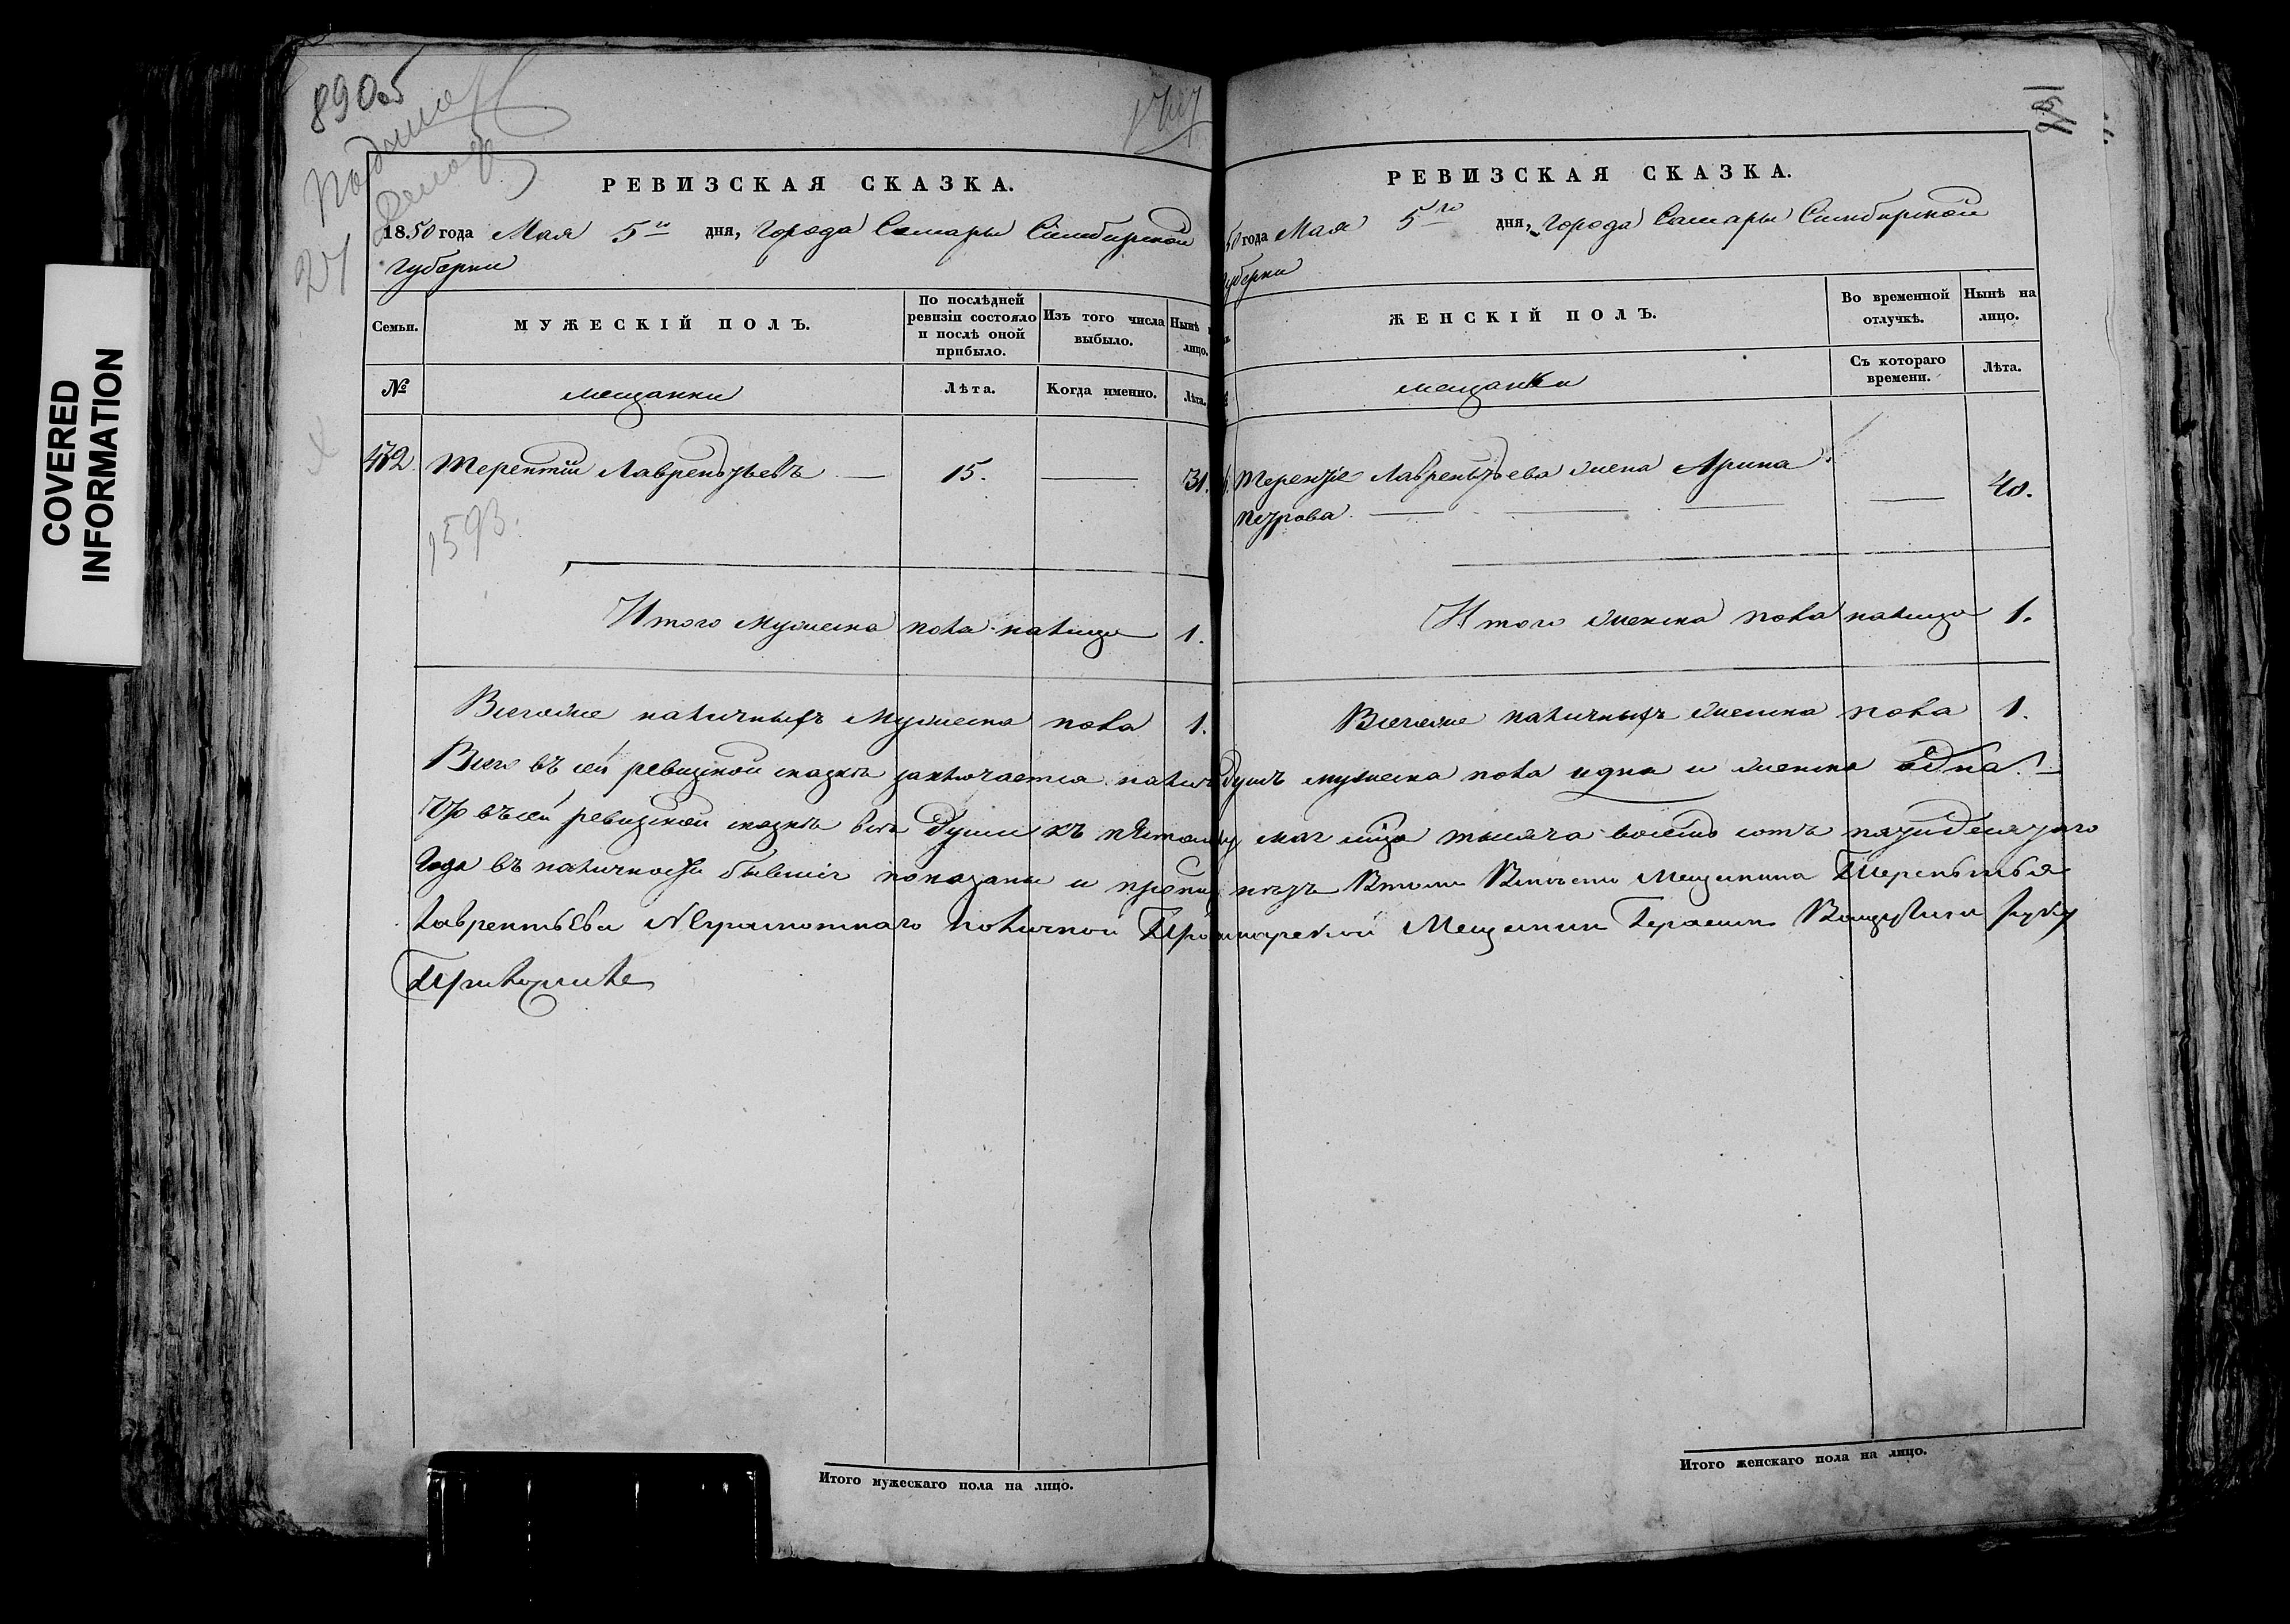 COVERED
INFORMATION
8905
27
РЕВИЗСКАЯ СКАЗКА.
1850 года Мая 5го дня, Города Самары Симбирской
губерни
Семьи.
МУЖЕСКІЙ ПОЛЪ.
По послѣдней
ревизіи состояло
и послѣ оной
прибыло.
Изъ того числа
выбыло.
Нынѣ
лицо.
№
мещанки
Лѣта.
Когда именно.
Лѣта.
Терентій Лаврентьевъ — 15. — 31.
1593.
Итого мужеска пола налицо 1.
Всегоже наличныхъ мужеска пола 1.
Итого мужескаго пола на лицо.
РЕВИЗСКАЯ СКАЗКА.
50 года Мая 5го дня, Города Самары Симбирской
губерни
ЖЕНСКІЙ ПОЛЪ.
Во временной
отлучкѣ.
Нынѣ на
лицо.
мещанки
Съ котораго
времени.
Лѣта.
Терентіе Лаврентьева жена Арина
Петрова — — — — 40.
Итого женска пола налицо 1.
Всегоже наличныхъ женска пола 1.
Всего въ сей ревизской сказкѣ заключается налич душъ мужеска пола одна и женска одна.
Что въ сей ревизской сказкѣ всѣ души къ пятому мая тысяча восемь сотъ пятидесятаго
Года въ наличности бывшіе показаны и Мещанина Терентья
Лаврентьева Неграмотнаго поличной Мещанин Герасим руку
Приложиле
Итого женскаго пола на лицо.